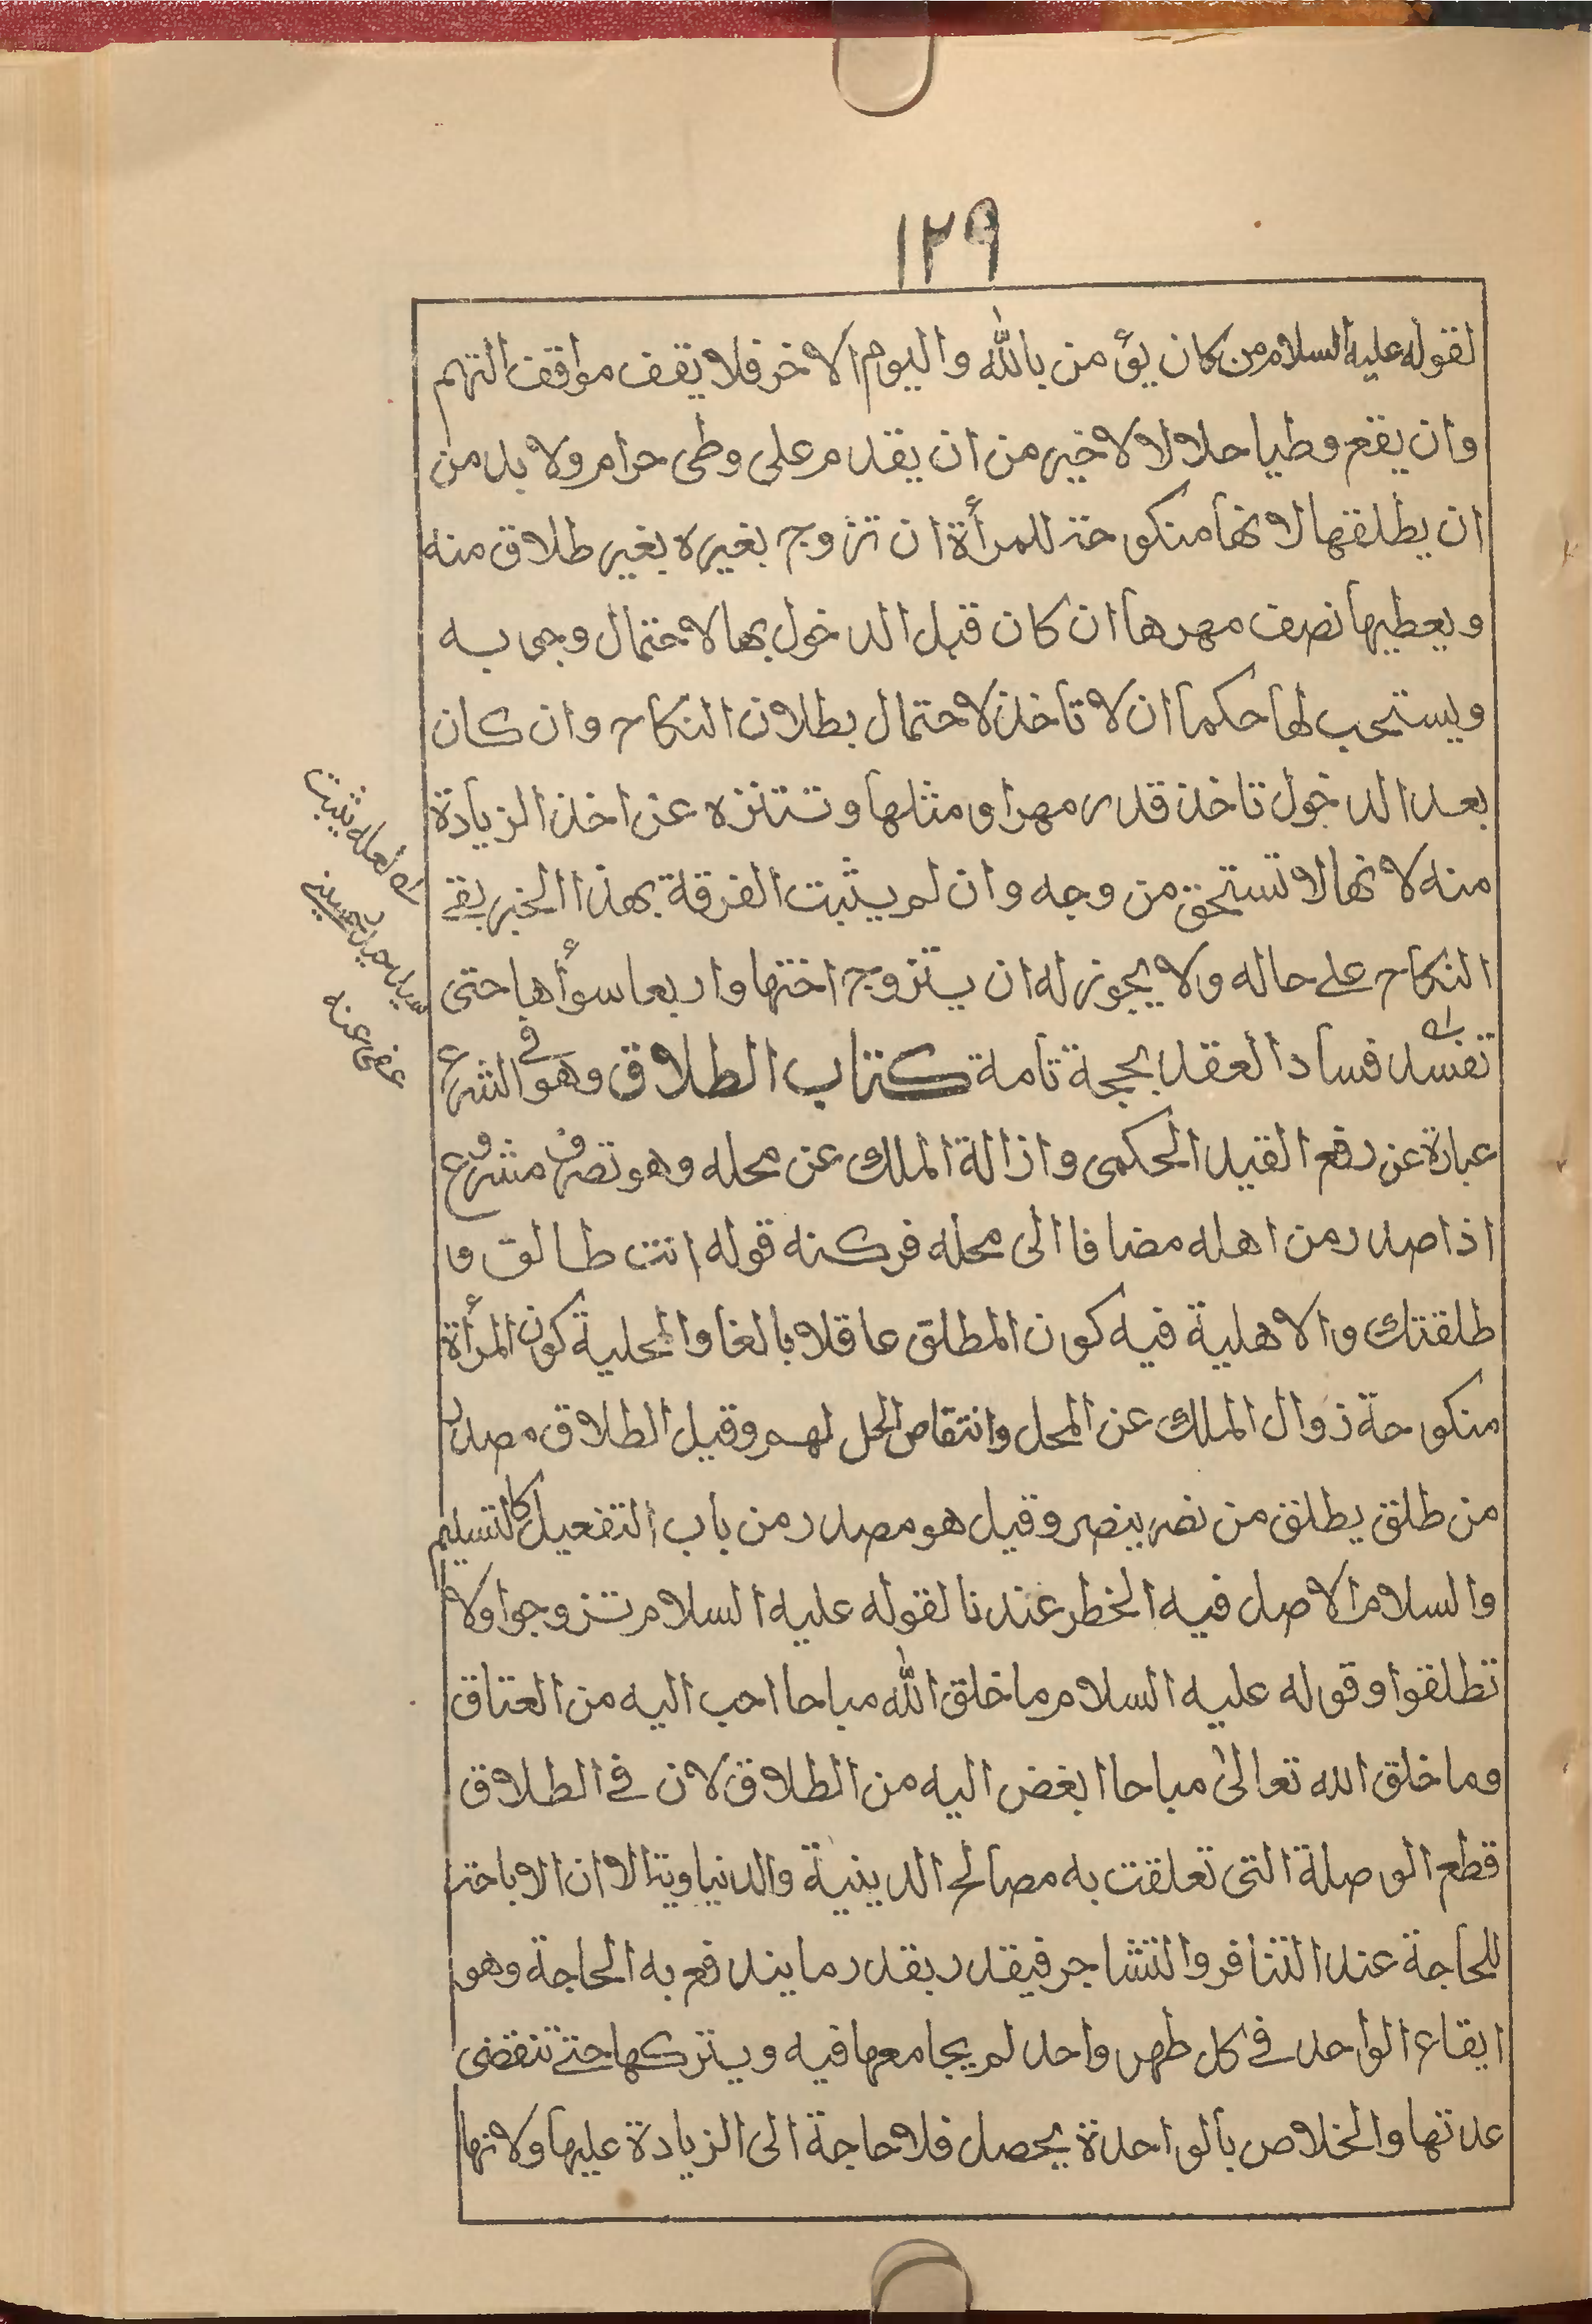 ١٢٩
لقوله عليه السلام من كان يؤمن بالله واليوم الاخر فلا يقف مواقف التهم
وان يقع وطيا حلالا لاخير من ان يقدم على وطى حرام ولا بد من
ان يطلقها لانها منكوحة للمرأة ان تزوج بغيره بغير طلاق منه
ويعطيها نصف مهرها ان كان قبل الدخول بها لاحتمال وجوبه
ويستحب لها حكما ان لا تاخذ لاحتمال بطلان النكاح وان كان
بعد الدخول تاخذ قدر مهرا ومثلها وتتنزه عن اخذ الزيادة
منه لانها لا تستحق من وجه وان لم يثبت الفرقة بهذا الخبر بقے
النكاح علے حاله ولا يجوز له ان يتزوج اختها واربعا سوأها حتى
تفسد فساد العقد بحجة تامة كتاب الطلاق وهو فے الشرع
عبارة عن رفع القيد الحكمى وازالة الملك عن محله وهو تصرف مشروع
اذا صدر من اهله مضافا الى محله فركنه قوله انت طالق وا
طلقتك والاهلية فيه كون المطلق عاقلا بالغا والمحلية كون المرأة
منكوحة زوال الملك عن المحل وانتقاص الحل لهم وقيل الطلاق مصدر
من طلق يطلق من نصر ينصر وقيل هو مصدر من باب التفعيل كالتسليم
والسلام الاصل فيه الخطر عندنا لقوله عليه السلام تزوجوا ولا
تطلقوا وقوله عليه السلام ما خلق الله مباحا احب اليه من العتاق
وما خلق الله تعالىٰ مباحا ابغض اليه من الطلاق لان فے الطلاق
قطع الوصلة التى تعلقت به مصالح الدينية والدنياوية الا ان الاباحة
للحاجة عند التنافر والتشاجر فيقدر بقدر ما يندفع به الحاجة وهو
ايقاع الواحد فے كل طهر واحد لم يجامعها فيه ويتركها حتے تنقضى
عدتها والخلاص بالواحدة يحصل فلا حاجة الى الزيادة عليها ولانها
لعله يثبت
عفى عنه